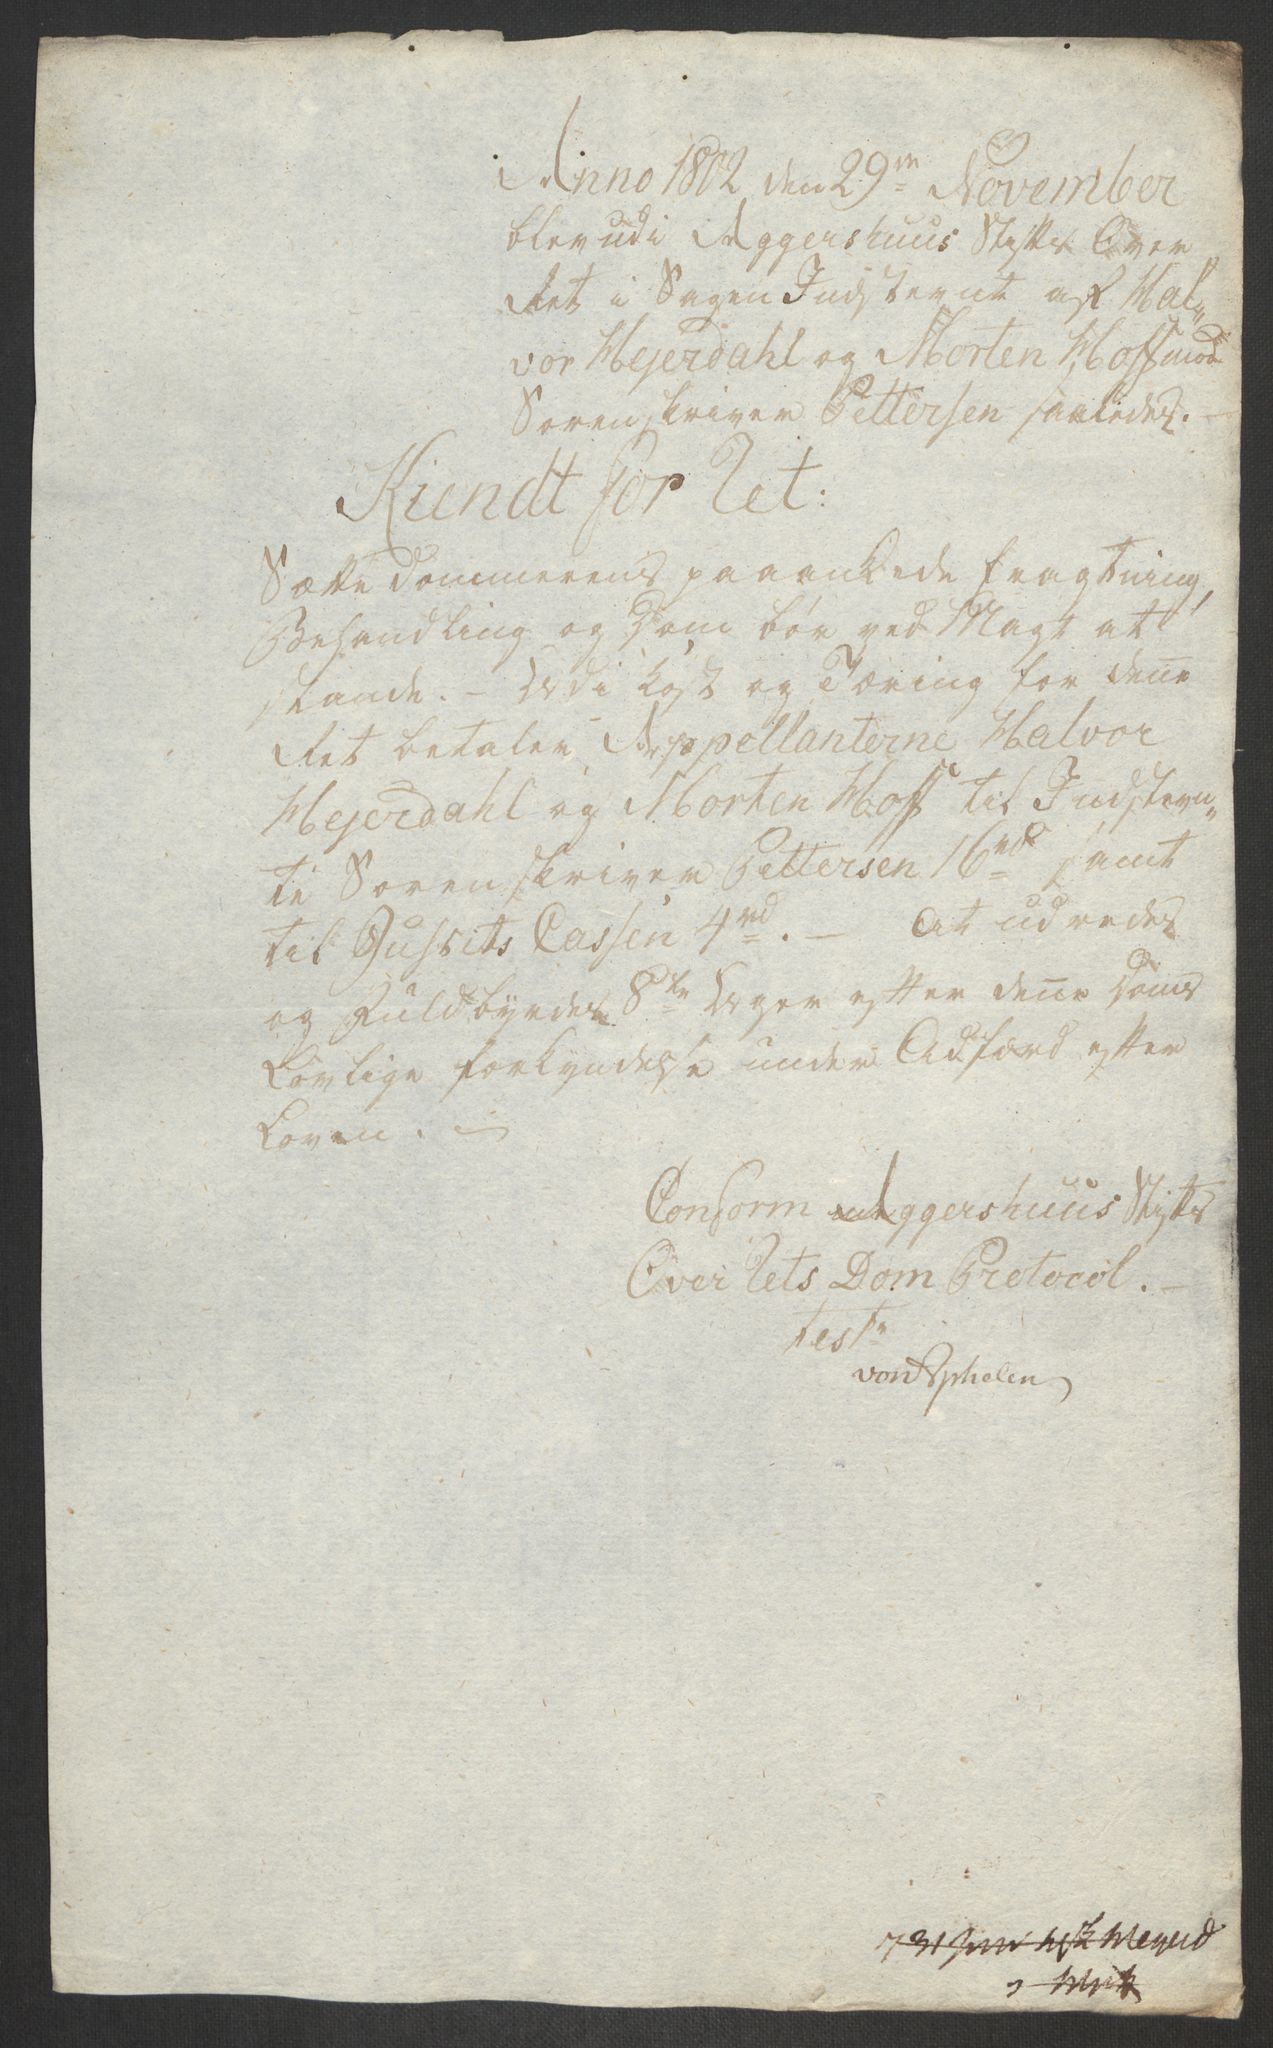 Anno 1802 den 29de November
blev udi Aggershuus Stifts Over
Ret i Sagen Indstevnt af Hal„
vor Hejerdahl og Morten Hoff mod
Sorenskriver Pettersen saaledes. —
Kiendt for Ret:
Sættedommerens paaankede Fragtning,
Behandling og Dom bør ved Magt at
stande. — Udi Kost og Tæring for denne
Ret betaler Appellanterne Halvor
Hejerdahl og Morten Hoff til Indstevn„
te Sorenskriver Pettersen 16rd samt
til Justits Cassen 4rd. — At udredes
og Fuldbyrdes 8te Uger efter denne Doms
Lovlige forkyndelse under Adfærd efter
Loven. —
Conform Aggershuus Stifts
Over Rets Dom Protocol. —
Test